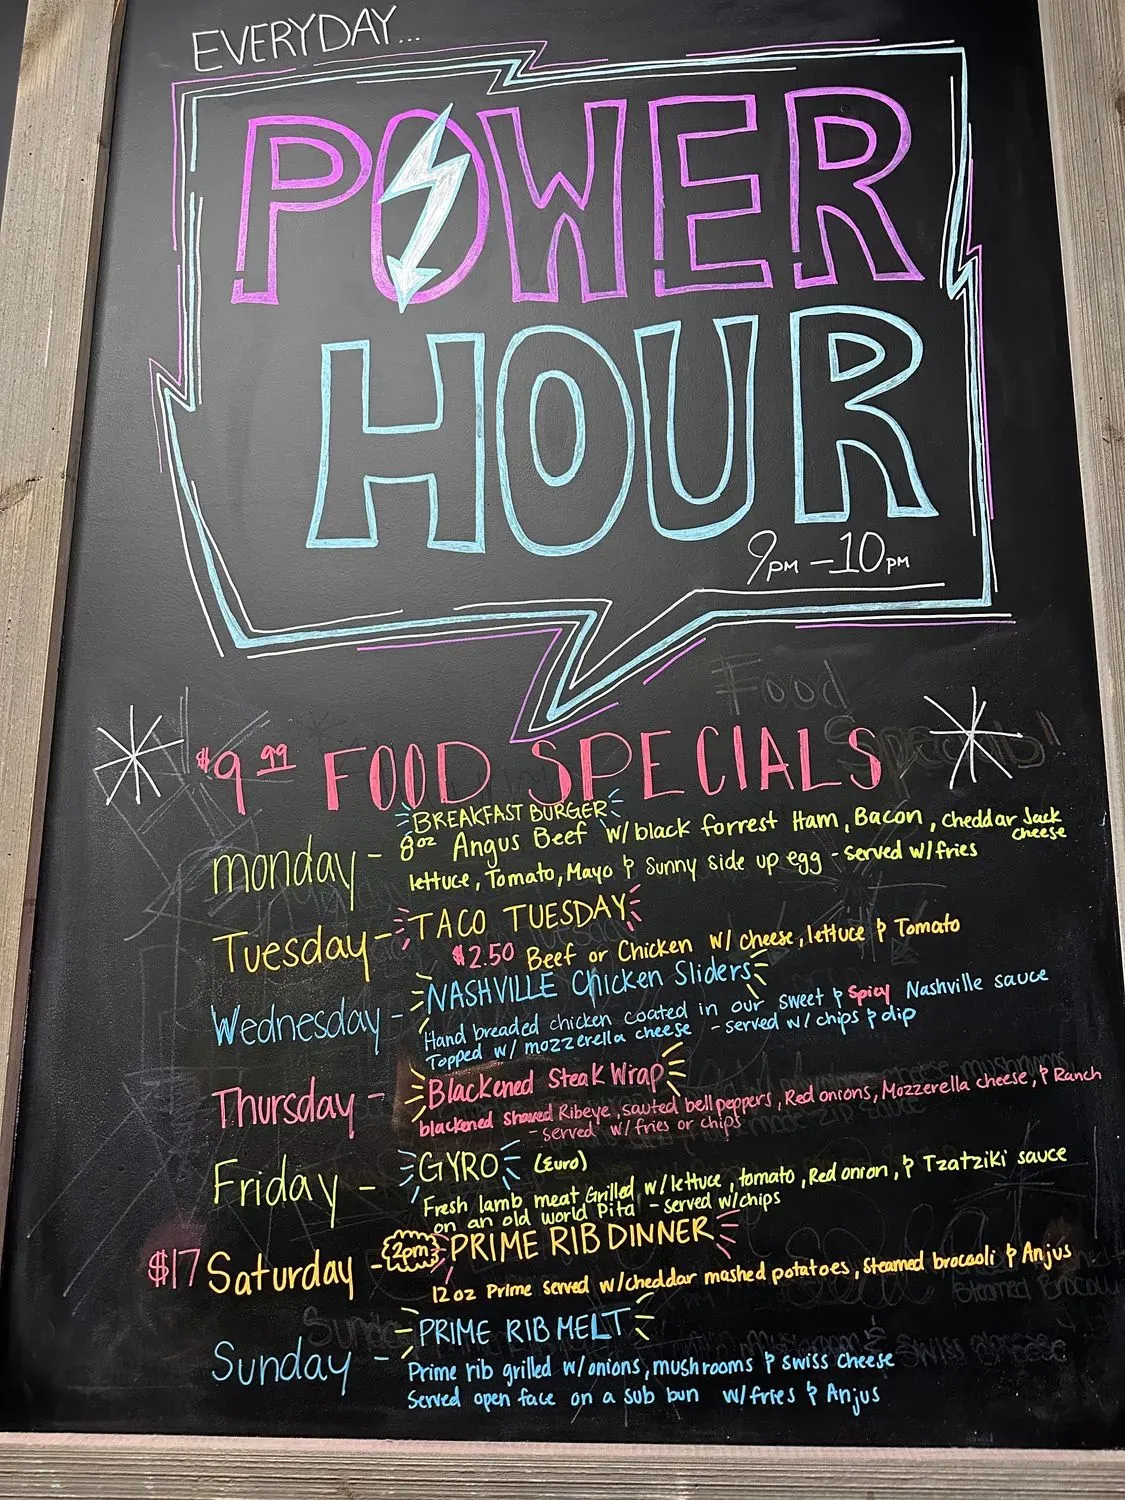 EVERYDAY...
POWER
HOUR
9PM - 10PM
Food
Specials!
$9.99 FOOD SPECIALS
BREAKFAST BURGER
monday - 8oz Angus Beef w/ black forrest Ham, Bacon, cheddar Jack cheese
lettuce, Tomato, Mayo & Sunny side up egg - served w/fries
Tuesday - TACO TUESDAY
$2.50 Beef or Chicken w/ cheese, lettuce & Tomato
Wednesday - NASHVILLE Chicken Sliders
Hand breaded chicken coated in our sweet & Spicy Nashville sauce
Topped w/ mozzerella cheese - served w/ chips & dip
Thursday - Blackened Steak Wrap
blackened shaved Ribeye, sauted bell peppers, Red onions, Mozzerella cheese, & Ranch
- served w/ fries or chips
Friday - GYRO (Euro)
Fresh lamb meat Grilled w/ lettuce, tomato, Red onion, & Tzatziki sauce
on an old world Pita - served w/chips
$17 Saturday - 2pm PRIME RIB DINNER
12 oz Prime served w/cheddar mashed potatoes, steamed brocooli & Anjus
Sunday - PRIME RIB MELT
Prime rib grilled w/onions, mushrooms & swiss cheese
Served open face on a sub bun w/fries & Anjus